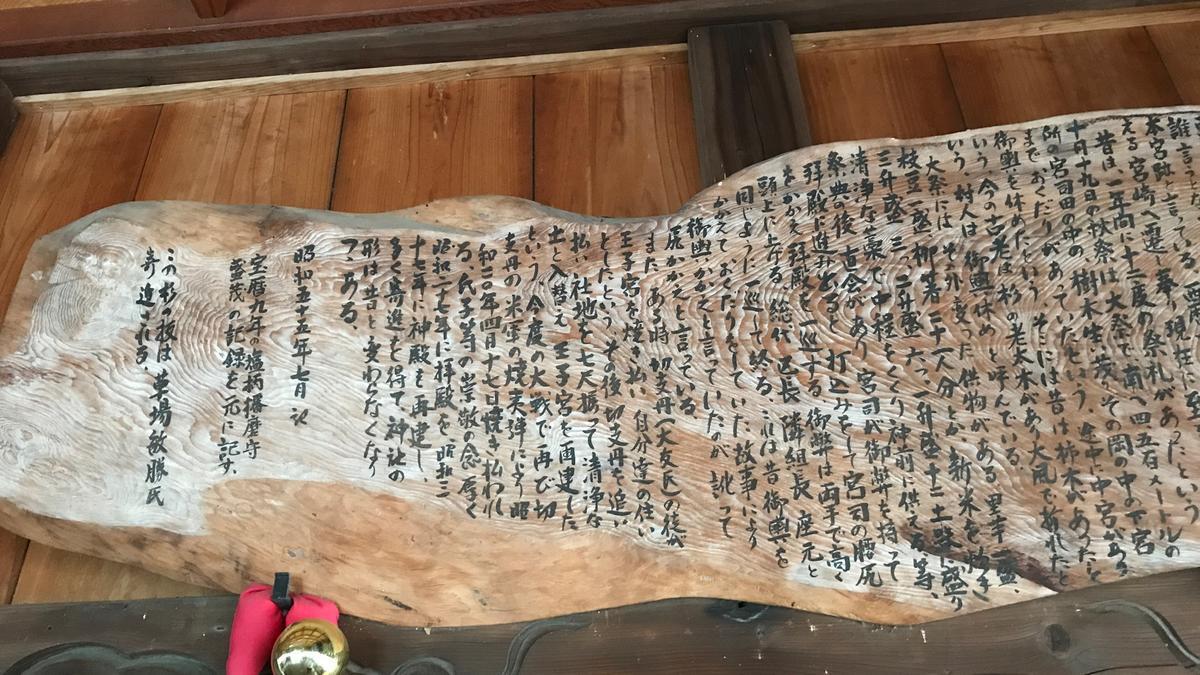 誰言うと
本宮跡と言っている。
える宮崎へ遷し奉り現在に
昔は、一年間に十二度の祭礼があったという
十月十九日の秋祭は大祭で南へ四五百メートルの
所の宮司田の中の樹木生い茂るその岡の中の下宮
までおくだりがあっていたという、途中に中宮がある。
御輿を休めたという、そこには昔は柿木があったと
いう今の古老は杉の老木があり大風で折れたと
いう村人は御輿休めと呼んでいる。
大祭には、その外変った供物がある。里芋一盛、
枝豆一盛柳箸二十一人分とか新米を炊き
三升盛三つ、二升盛六つ、一升盛十二土器に盛り
清浄な藁で中程をくくり神前に供える等、
祭典後直会があり宮司が御幣を持って
拝殿に進み出ると打込みをして宮司の腰尻
をかかえ拝殿を一巡する御幣は両手で高く
頭上に上げる。総代区長隣組長座元と
同じように一巡し終る。これは昔御輿を
かかえておくだりをしていた故事により
御輿かかえと言っていたのが訛って
尻かかえと言っている。
また、ある時切支丹(大友氏)の徒が
王子宮を焼き払い自分達の住い
としたという、その後切支丹を追い
払い社地を七尺掘って清浄な
土と入替え王子宮を再建した
という。今度の大戦で再び切
支丹の米軍の焼夷弾により昭
和二〇年四月十七日焼き払われ
る。氏子等の崇敬の念厚く
昭和二七年に拝殿を昭和三
十七年に神殿を再建し、
多く寄進を得て神社の
形は昔と変わらなくなり
つつある、
昭和五十五年七月記
宝暦九年の盧柄播磨守
藤茂の記録を元に記す。
この杉の板は葉場敏勝氏
寄進される。